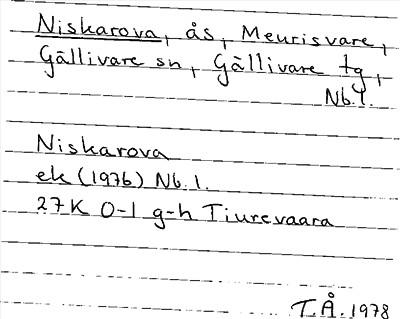 Niskarova, ås, Meurisvare,
Gällivare sn, Gällivare tg,
Nb.l.
Niskarova
ek (1976) Nb.l.
27K 0-1 g-h Tiurevaara
T.Å. 1978